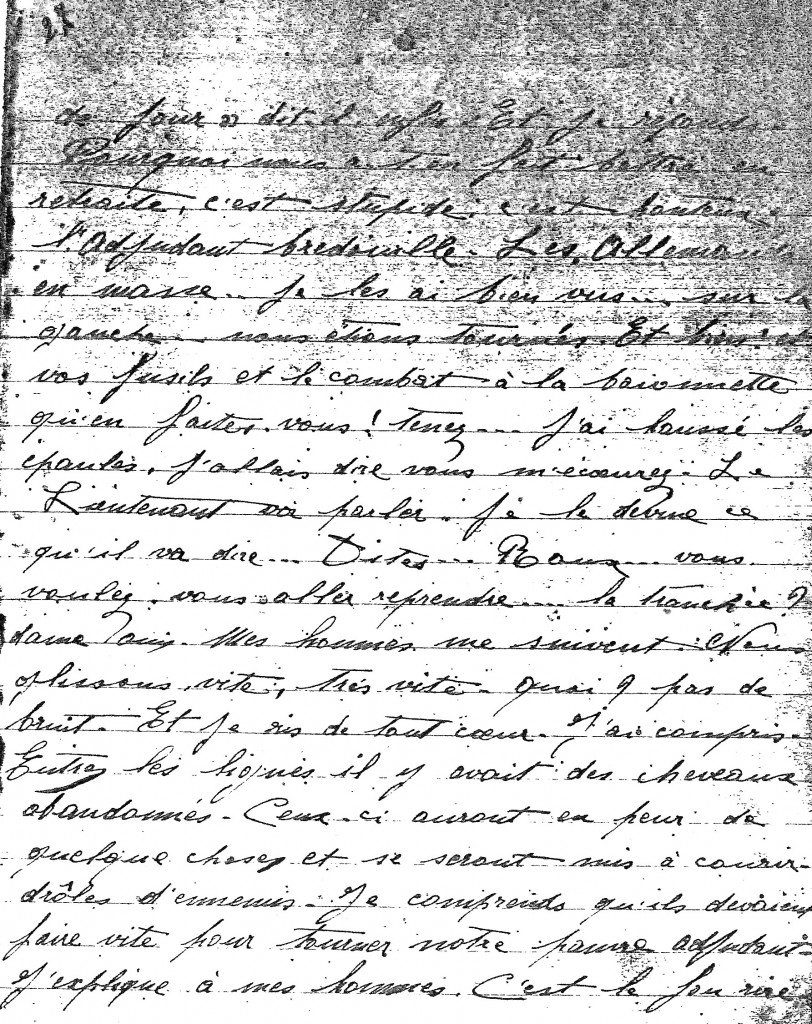 27
de jour » dit-il enfin. Et je réponds.
Pourquoi nous a-t-on fait battre en
retraite, c'est stupide, c'est honteux.
l'Adjudant bredouille. Les Allemands
en masse... je les ai bien vus... sur la
gauche... nous étions tournés. Et bien! et
vos fusils et le combat à la baionnette
qu'en faites-vous! tenez... j'ai haussé les
épaules, j'allais dire vous m'écœurez. Le
Lieutenant va parler. Je le devine ce
qu'il va dire... Dites... Roux... vous
voulez vous aller reprendre... la tranchée?
dame oui. Mes hommes me suivent. Nous
glissons, vite, très vite. quoi? pas de
bruit. Et je ris de tout cœur. J'ai compris.
Entre les lignes il y avait des chevaux
abandonnés. Ceux-ci auront eu peur de
quelque chose, et se seront mis à courir.
drôles d'ennemis. Je comprends qu'ils devaient
faire vite pour tourner notre pauvre adjudant.
J'explique à mes hommes. C'est le fou rire